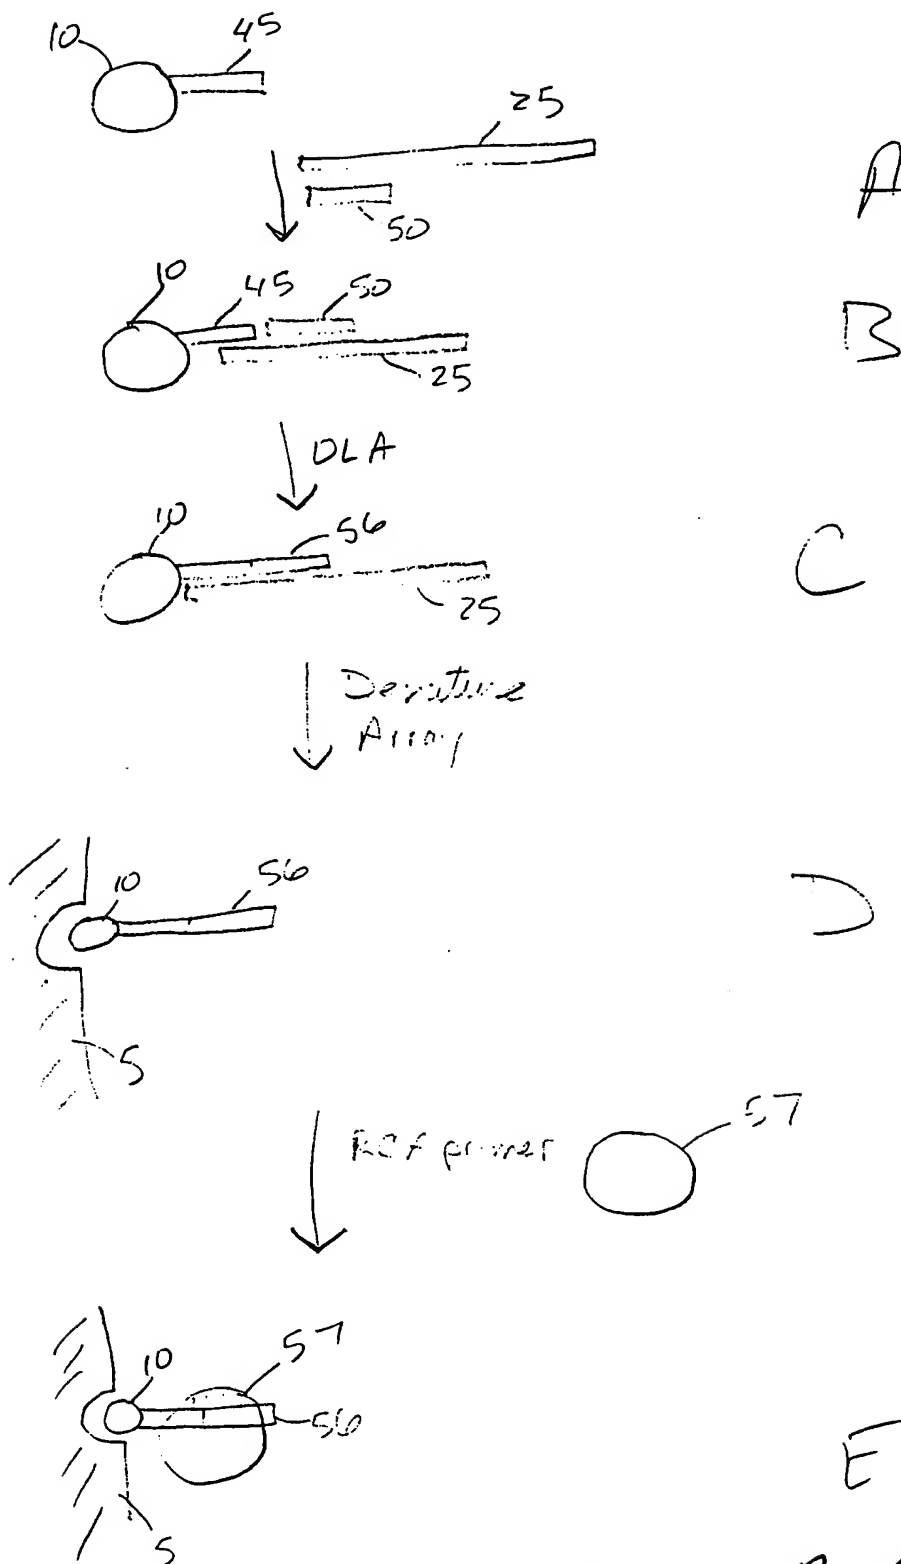 10 45
25
A
50
10 45 50
B
25
OLA
10 56
C
25
Denature
Array
10 56
D
5
57
RCA primer
10 57
56
E
5